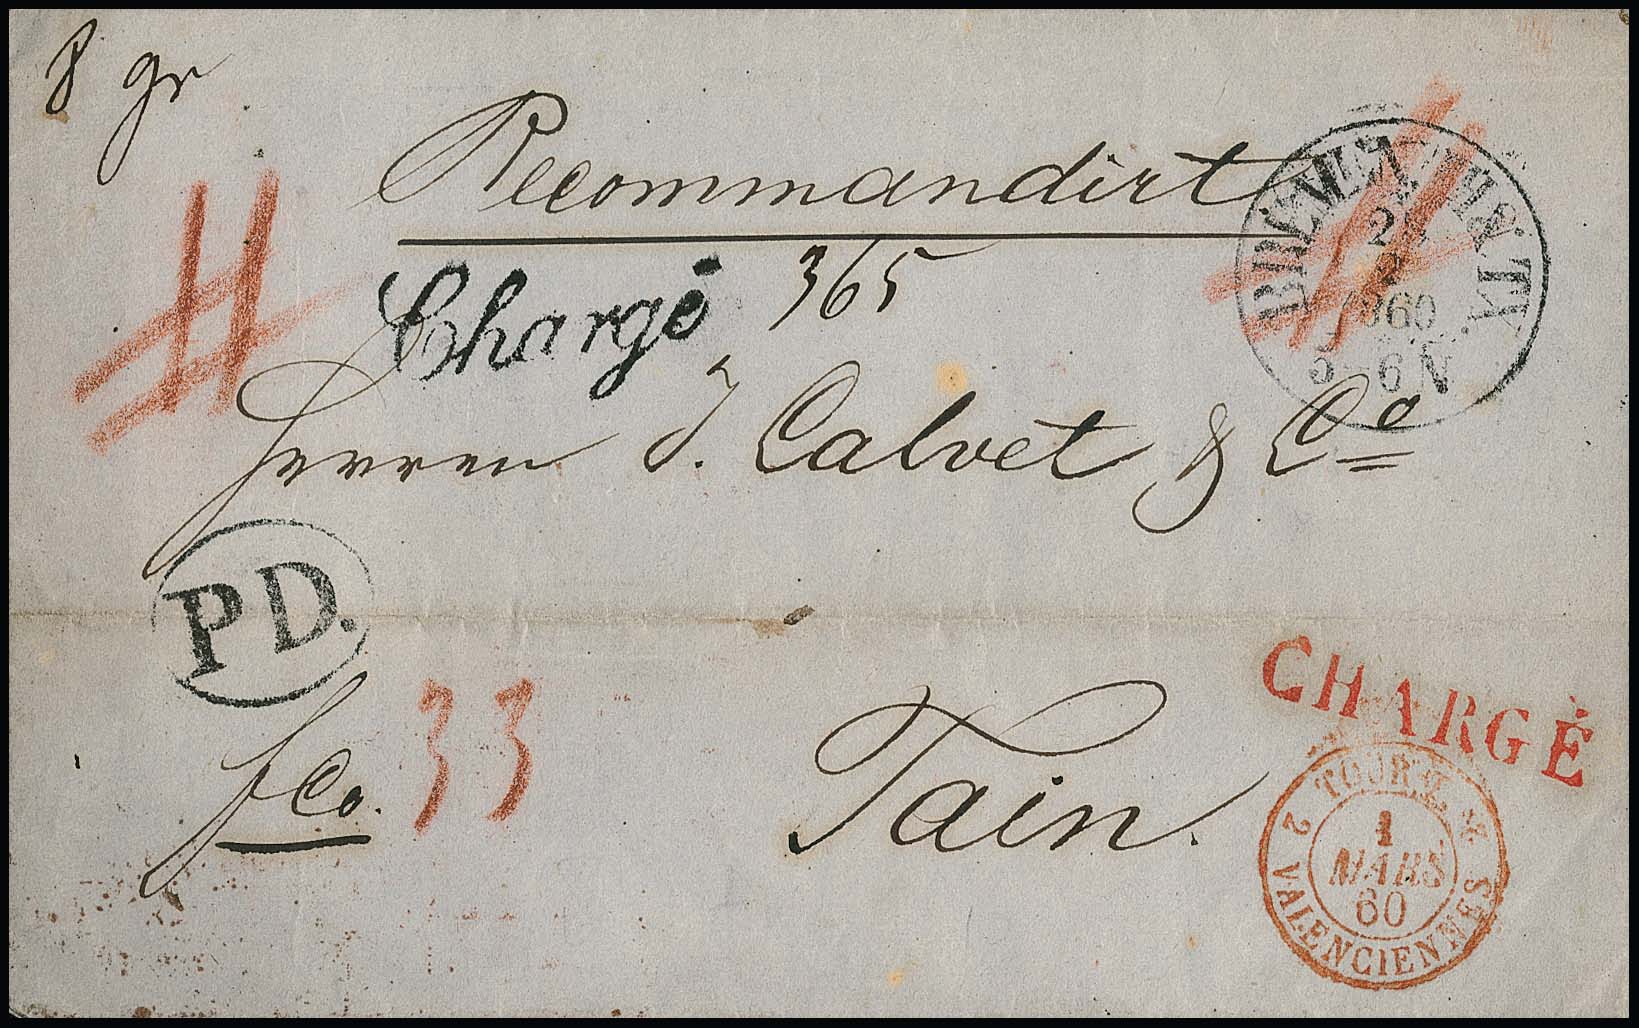 8 gr
Recommandirt
Chargé 365
BREMEN TH & TX
2
1860
5-6 N
Herren J. Calvet & Co
P.D.
fco. 33
Tain.
CHARGÉ
2 TOUR.T. 2 VALENCIENNES
1
MARS
60